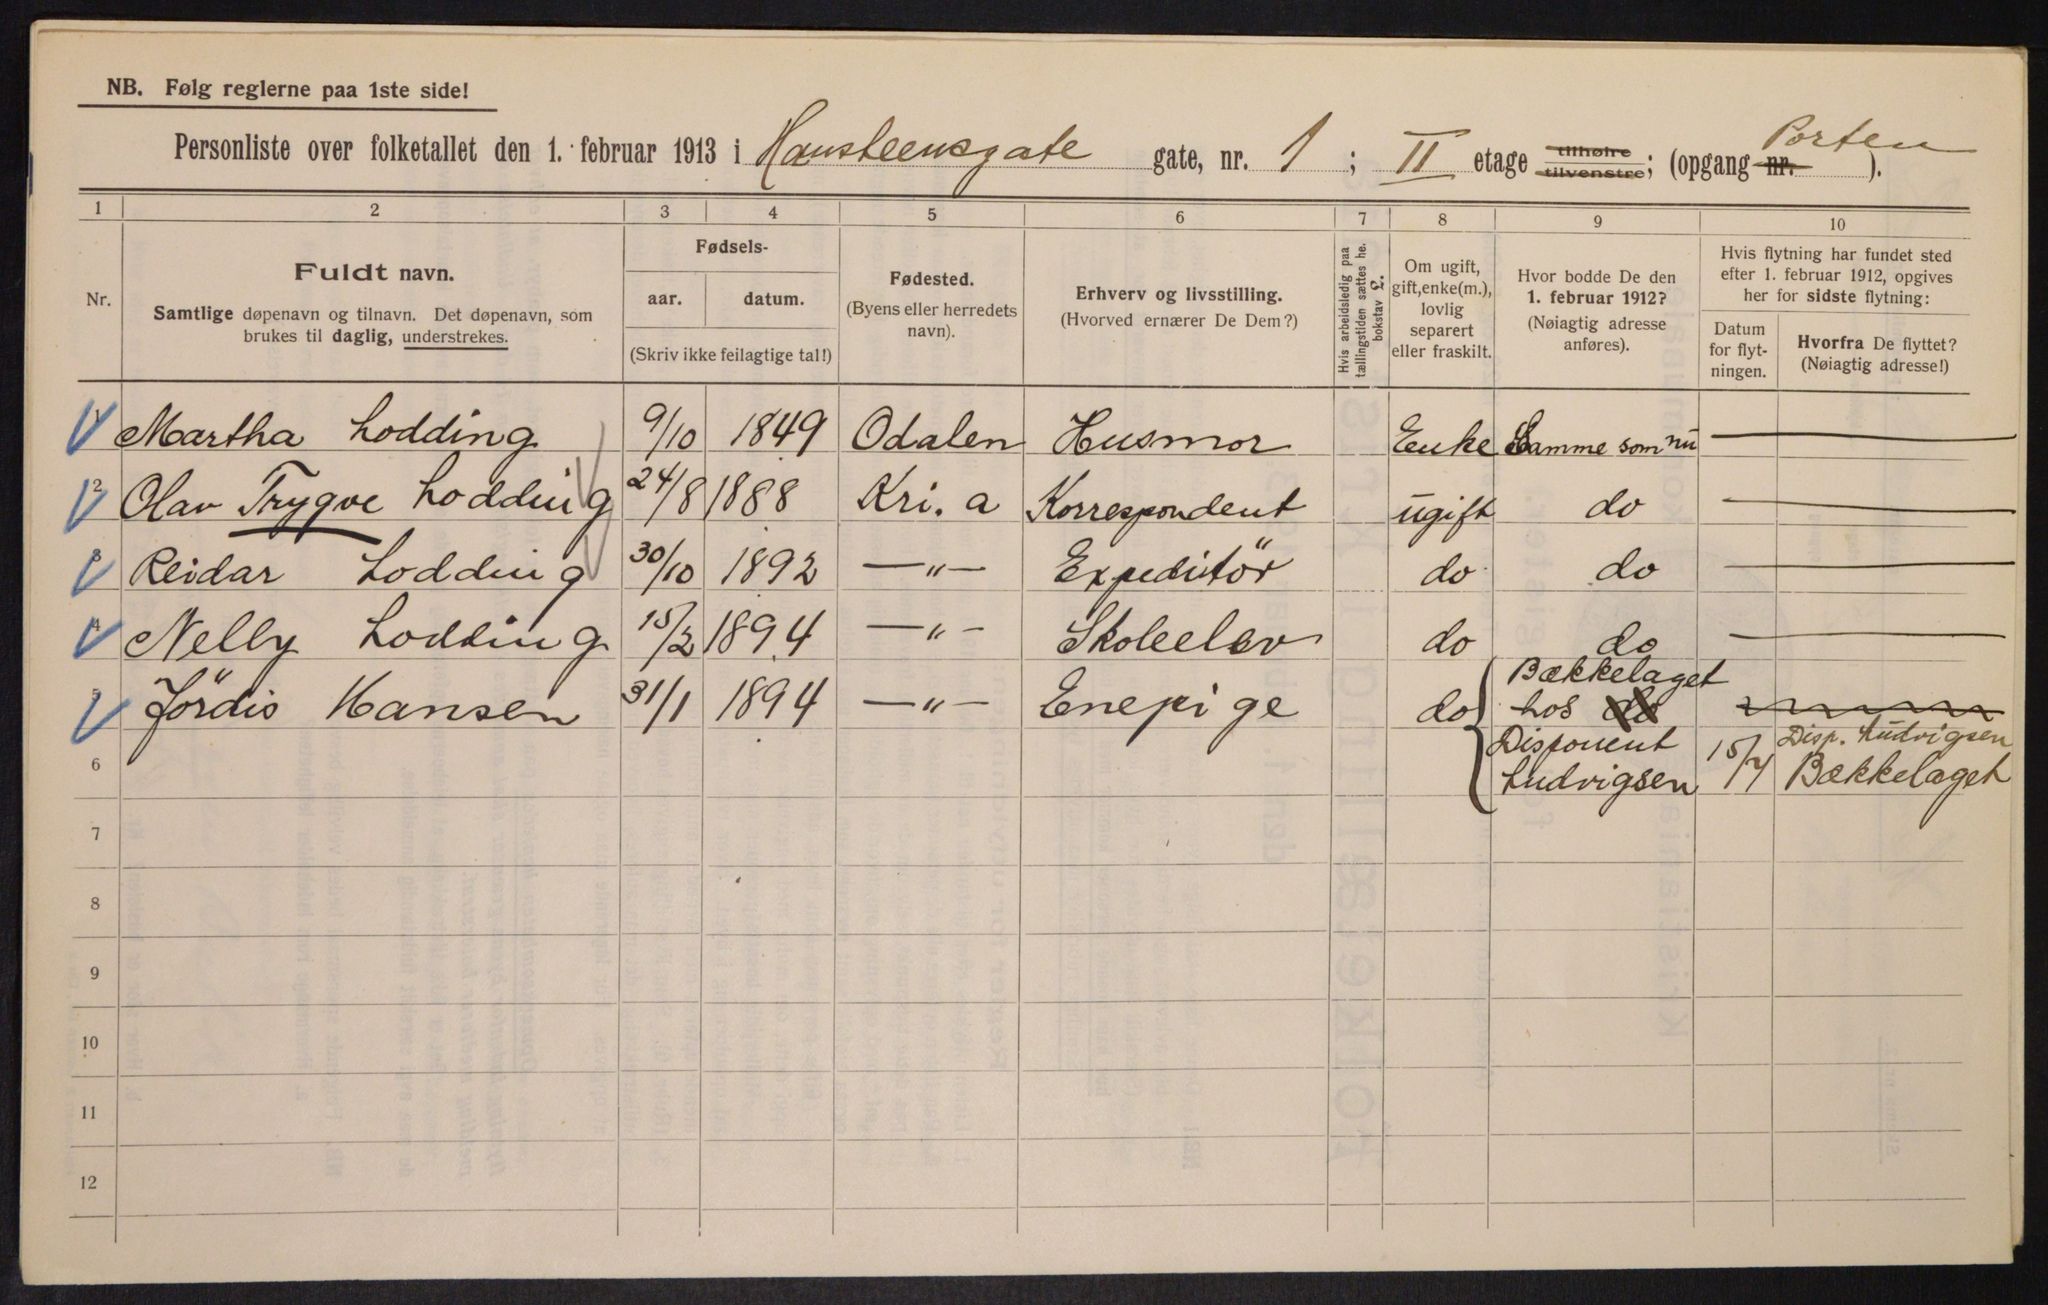 NB. Følg reglerne paa 1ste side!
Personliste over folketallet den 1. februar 1913 i Hansteensgate gate, nr. 1 ; II etage tilhøire tilvenstre; (opgang nr. Porten ).
1 2 3 4 5 6 7 8 9 10
Nr.
Fuldt navn.
Samtlige døpenavn og tilnavn. Det døpenavn, som
brukes til daglig, understrekes.
Fødsels-
aar. datum.
(Skriv ikke feilagtige tal!)
Fødested.
(Byens eller herredets
navn).
Erhverv og livsstilling.
(Hvorved ernærer De Dem?)
Hvis arbeidsledig paa
tællingstiden sættes he.
bokstav L.
Om ugift,
gift, enke(m.),
lovlig
separert
eller fraskilt.
Hvor bodde De den
1. februar 1912?
(Nøiagtig adresse
anføres).
Hvis flytning har fundet sted
efter 1. februar 1912, opgives
her for sidste flytning:
Datum
for flyt-
ningen.
Hvorfra De flyttet?
(Nøiagtig adresse!)
1 Martha Lodding 9/10 1849 Odalen Husmor Enke Samme som nu —
2 Olav Trygve Lodding 24/8 1888 Kri.a Korrespondent ugift do —
3 Reidar Lodding 30/10 1892 —"— Expeditör do do —
4 Nelly Lodding 15/2 1894 —"— Skoleelev do do —
5 Jördis Hansen 31/1 1894 —"— Enepige do Bækkelaget
hos do
Disponent
Ludvigsen 15/4 Disp. Ludvigsen
Bækkelaget
6
7
8
9
10
11
12